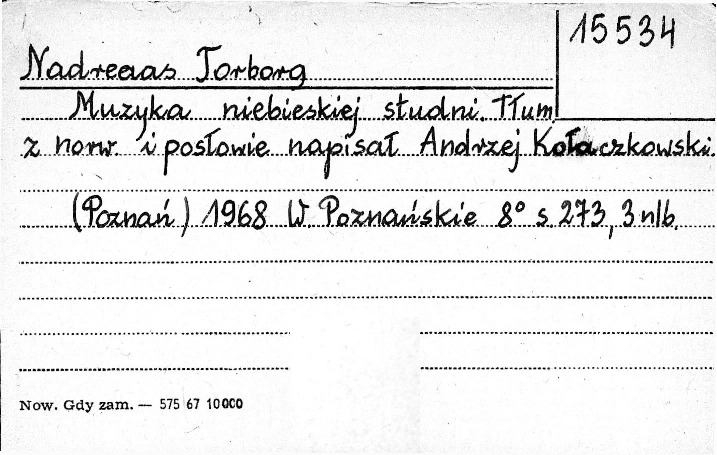 15534
Nadreaas Torborg
Muzyka niebieskiej studni. Tłum
z norw. i posłowie napisał Andrzej Kołaczkowski.
(Poznań) 1968 W. Poznańskie 8° s. 273, 3 nlb.
Now. Gdy zam. — 575 67 10000